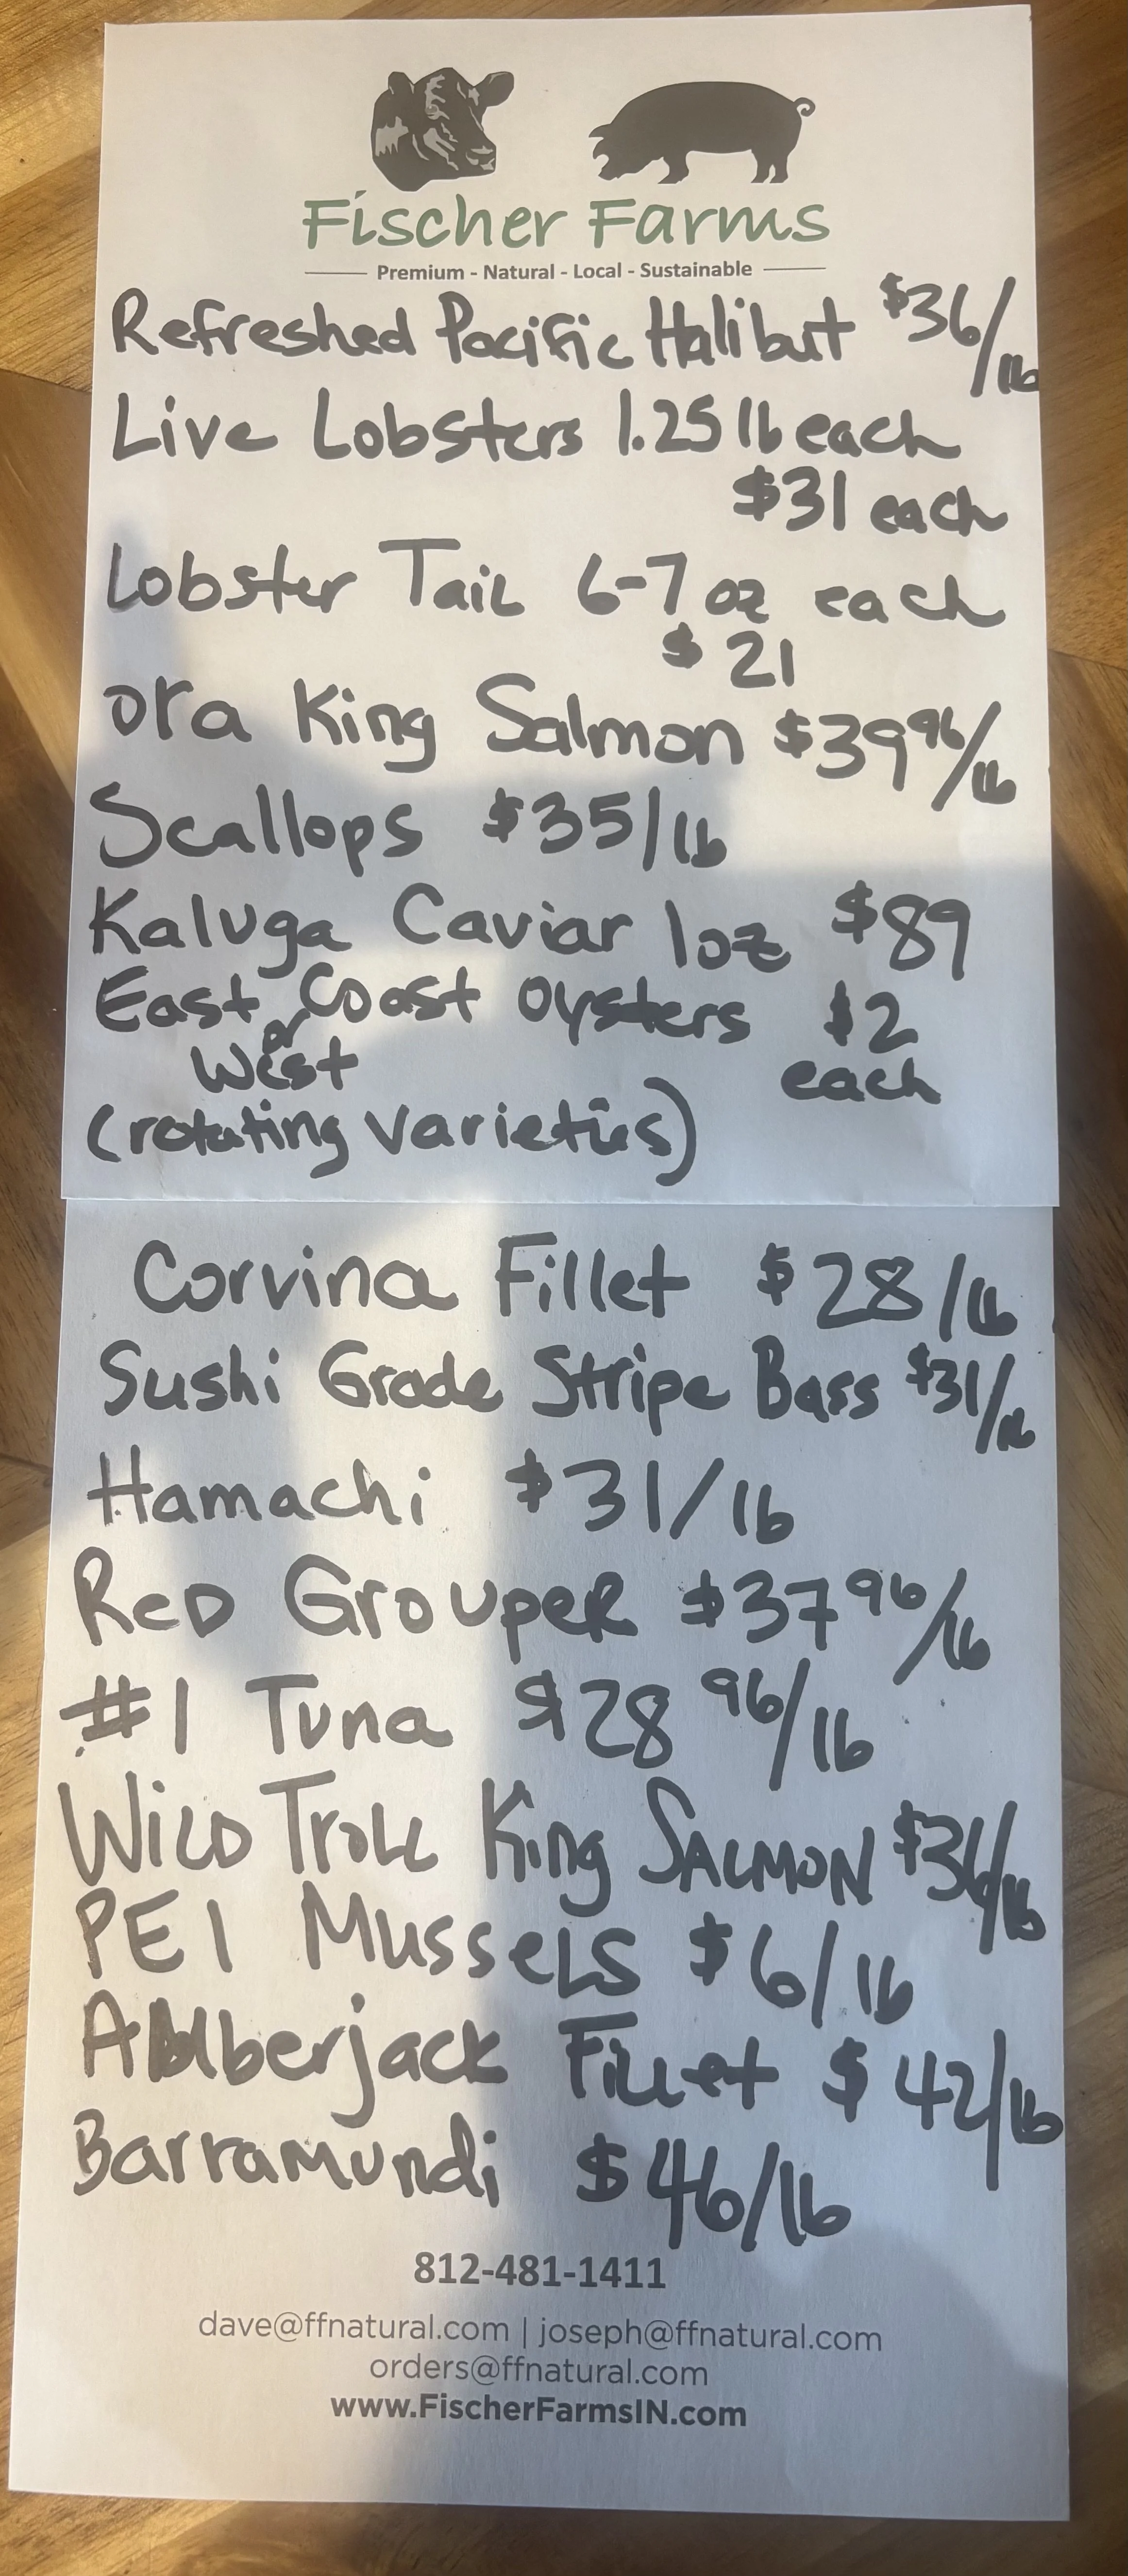 Fischer Farms
Premium - Natural - Local - Sustainable
Refreshed Pacific Halibut $36/lb
Live Lobsters 1.25 lb each
$31 each
Lobster Tail 6-7 oz each
$21
Ora King Salmon $39 96/lb
Scallops $35/lb
Kaluga Caviar 1oz $89
East or Coast Oysters $2
West each
(rotating varieties)
Corvina Fillet $28/lb
Sushi Grade Stripe Bass $31/lb
Hamachi $31/lb
Red Grouper $37 96/lb
#1 Tuna $28 96/lb
Wild Troll King Salmon $36/lb
PEI Mussels $6/lb
Amberjack Fillet $42/lb
Barramundi $46/lb
812-481-1411
dave@ffnatural.com | joseph@ffnatural.com
orders@ffnatural.com
www.FischerFarmsIN.com